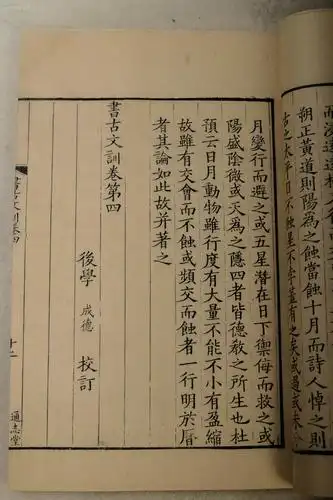 朔正黃道則陽為之蝕當蝕十月而詩人悼之則
古之太平日不蝕星不孛蓋有之矣或過或未
月變行而避之或五星潛在日下禦侮而救之或
陽盛陰微或天為之隱四者皆德敎之所生也杜
預云日月動物雖行度有大量不能不小有盈縮
故雖有交會而不蝕或頻交而蝕者一行明於曆
者其論如此故并著之
書古文訓卷第四
後學 成德 校訂
通志堂